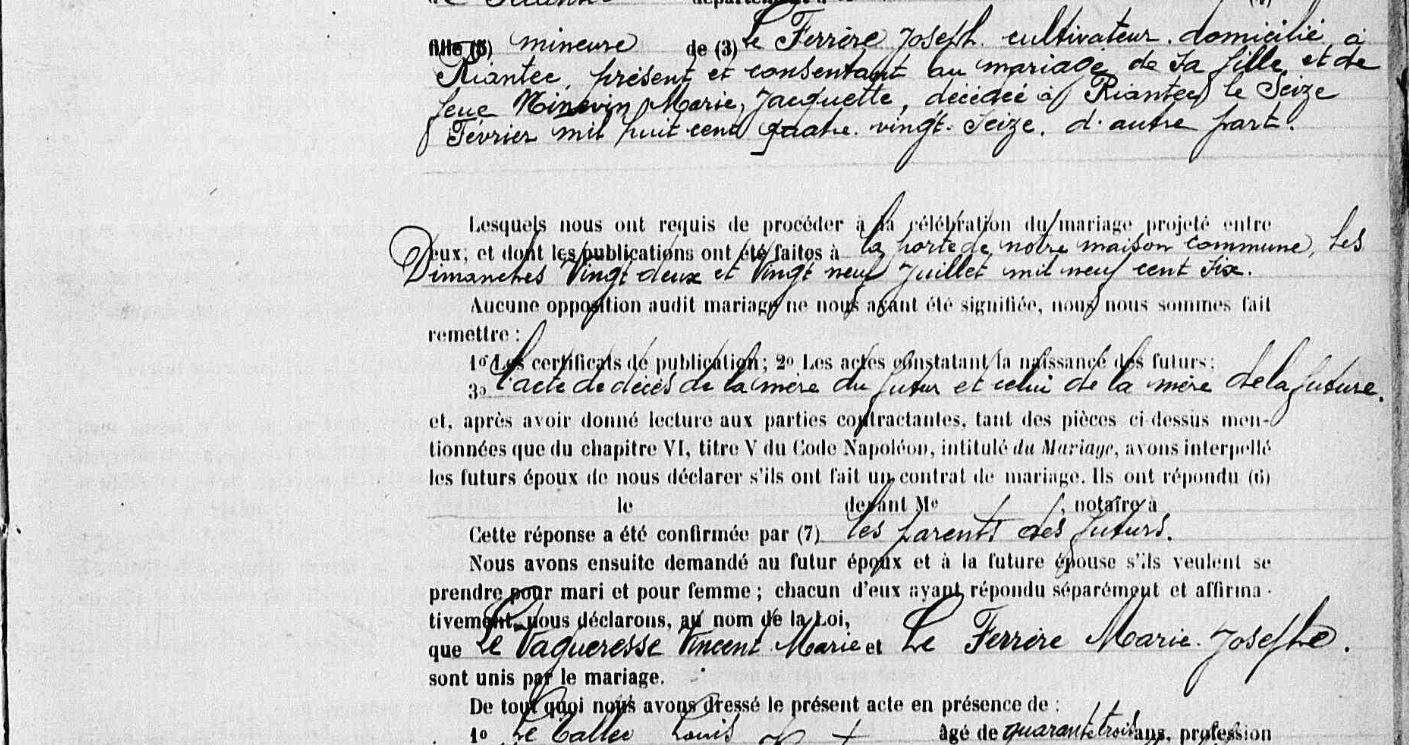 fille (5) mineure de (3) Le Ferrère Joseph. cultivateur. domicilié à
Riantec, présent et consentant au mariage de sa fille, et de
feue Minevin Marie, Jacquette, décédée à Riantec le Seize
Février mil huit cent quatre. vingt. Seize. d'autre part.
Lesquels nous ont requis de procéder à la célébration du mariage projeté entre
eux; et dont les publications ont été faites à la porte de notre maison commune, les
Dimanches Vingt deux et Vingt neuf Juillet mil neuf cent six.
Aucune opposition audit mariage ne nous ayant été signifiée, nous nous sommes fait
remettre :
1º Les certificats de publication; 2º Les actes constatant la naissance des futurs;
3º l'acte de décès de la mère du futur et celui de la mère de la future.
et, après avoir donné lecture aux parties contractantes, tant des pièces ci-dessus men-
tionnées que du chapitre VI, titre V du Code Napoléon, intitulé du Mariage, avons interpellé
les futurs époux de nous déclarer s'ils ont fait un contrat de mariage. Ils ont répondu (6)
le devant Me , notaire à
Cette réponse a été confirmée par (7) les parents des futurs.
Nous avons ensuite demandé au futur époux et à la future épouse s'ils veulent se
prendre pour mari et pour femme ; chacun d'eux ayant répondu séparément et affirma-
tivement, nous déclarons, au nom de la Loi,
que Le Vagueresse Vincent Marie et Le Ferrère Marie. Josephe.
sont unis par le mariage.
De tout quoi nous avons dressé le présent acte en présence de :
1º Le Tallec Louis âgé de quarante trois ans, profession